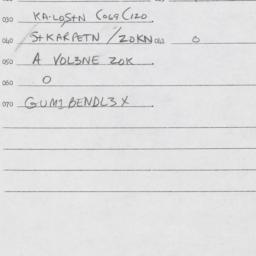 030 KA-LOStN COG9C120
040 StKARPETN /ZOKN 042 0
050 A VOL3NE ZOK
060 0
070 GUM1BENDL3X